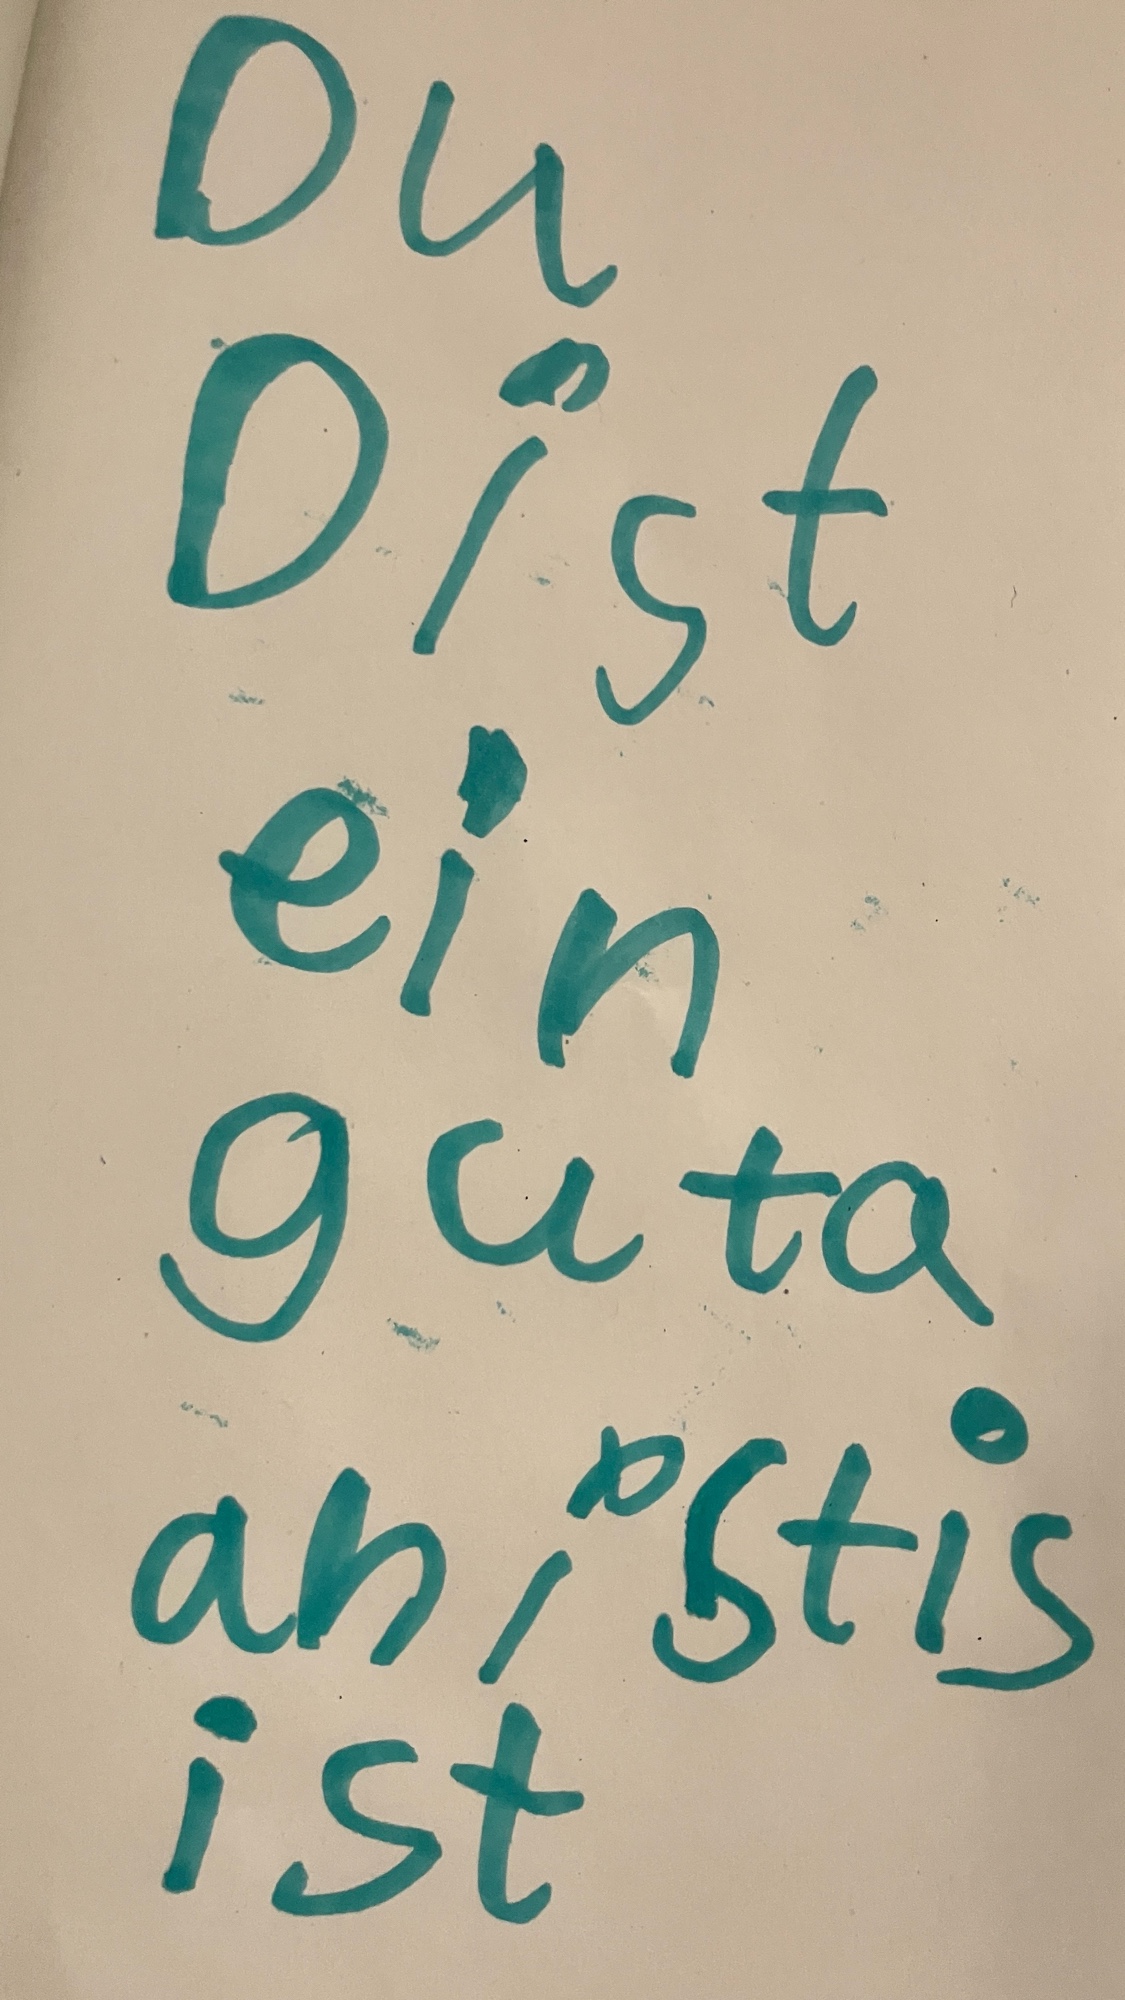 Du
Dist
ein
guta
anistis
ist